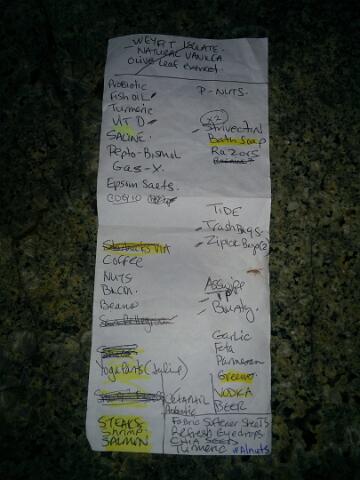 WEYFIT ISOLATE.
NATURAL VANILLA
Olive Leaf
Probiotic
Fish OiL
Turmeric
VIT D
SALINE
Pepto-Bismol
Gas-X.
Epsom Salts.
COQ10
P-NUTS.
X2
Strivectin
Bath Soap
Razors
TIDE
Trash Bags
Ziploc Bags(2)
Starbucks VIA
COFFEE
NUTS
Bacon.
Beans
San Pellegrino
Yoga Pants (Julie)
Bounty
Garlic
Feta
Parmesan
Greens
VODKA
BEER
STEAKS
Shrimp
SALMON
Fabric Softener Sheets
Refresh Eyedrops
CHIA SEEDS
Turmeric Walnuts